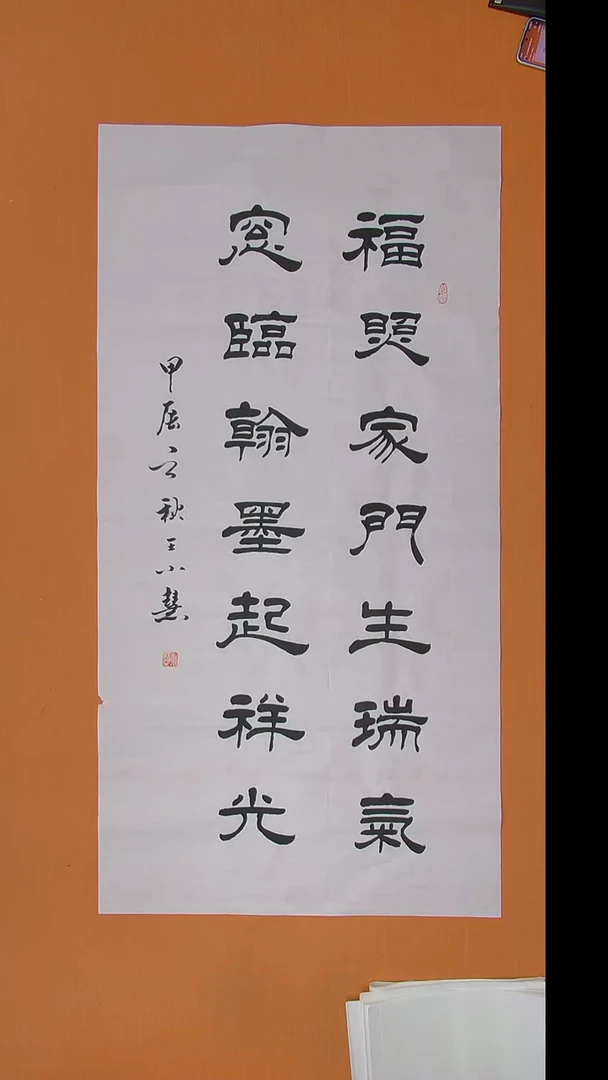 福照家門生瑞氣
窓臨翰墨起祥光
甲辰之秋王小慧